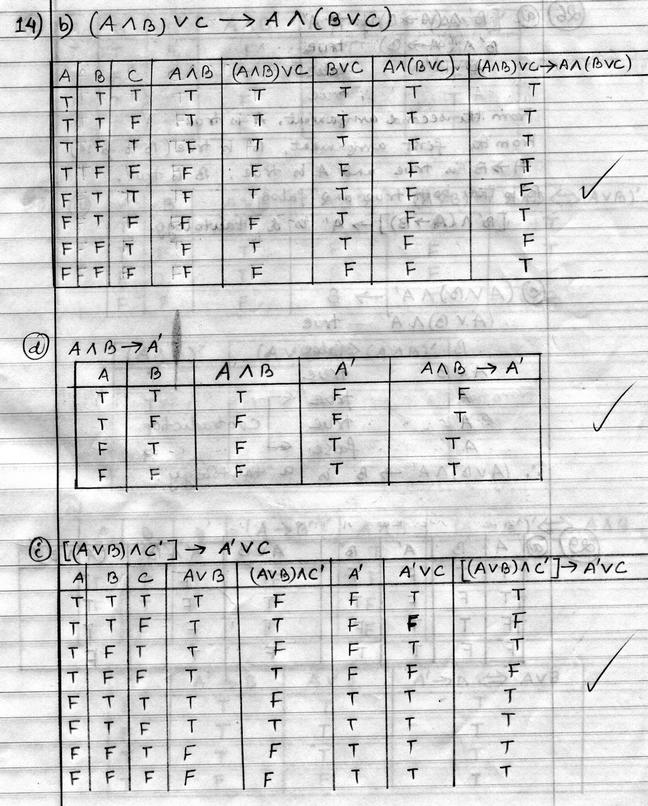 14) b) (A ∧ B) ∨ C → A ∧ (B ∨ C)
A B C A∧B (A∧B)∨C B∨C A∧(B∨C). (A∧B)∨C→A∧(B∨C)
T T T T T T T T
T T F T T T T T
T F T F T T T T
T F F F F F F T
F T T F T T F F
F T F F F T F T
F F T F T T F F
F F F F F F F T
d) A ∧ B → A'
A B A ∧ B A' A∧B → A'
T T T F F
T F F F T
F T F T T
F F F T T
i) [(A∨B)∧C'] → A'∨C
A B C A∨B (A∨B)∧C' A' A'∨C [(A∨B)∧C']→A'∨C
T T T T F F T T
T T F T T F F F
T F T T F F T T
T F F T T F F F
F T T T F T T T
F T F T T T T T
F F T F F T T T
F F F F F T T T